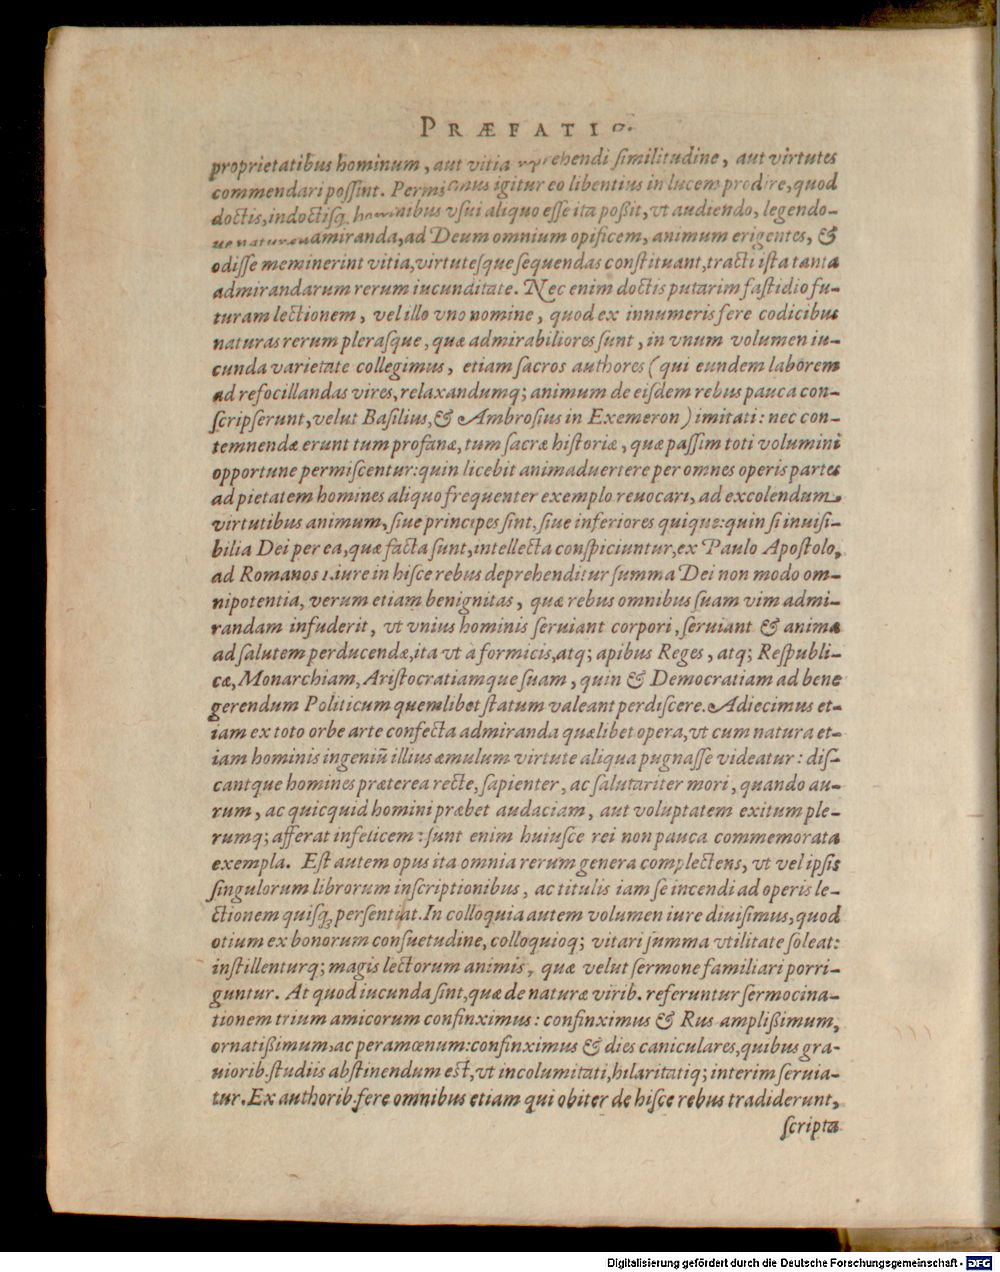 PRÆFATIO.
proprietatibus hominum, aut vitia reprehendi ſimilitudine, aut virtutes
commendari poſſint. Permi igitur eo libentius in lucem prodire, quod
doctis, indoctiſq́; hominibus vſui aliquo eſſe ita poßit, vt audiendo, legendo-
ue naturæ admiranda, ad Deum omnium opificem, animum erigentes, &
odiſſe meminerint vitia, virtuteſque ſequendas conſtituant, tracti iſta tanta
admirandarum rerum iucunditate. Nec enim doctis putarim faſtidio fu-
turam lectionem, vel illo vno nomine, quod ex innumeris fere codicibus
naturas rerum pleraſque, quæ admirabiliores ſunt, in vnum volumen iu-
cunda varietate collegimus, etiam ſacros authores (qui eundem laborem
ad refocillandas vires, relaxandumq; animum de eiſdem rebus pauca con-
ſcripſerunt, velut Baſilius, & Ambroſius in Exemeron) imitati: nec con-
temnendæ erunt tum profanæ, tum ſacræ hiſtoriæ, quæ paſſim toti volumini
opportune permiſcentur: quin licebit animaduertere per omnes operis partes
ad pietatem homines aliquo frequenter exemplo reuocari, ad excolendum
virtutibus animum, ſiue principes ſint, ſiue inferiores quique: quin ſi inuiſi-
bilia Dei per ea, quæ facta ſunt, intellecta conſpiciuntur, ex Paulo Apoſtolo,
ad Romanos 1. iure in hiſce rebus deprehenditur ſumma Dei non modo om-
nipotentia, verum etiam benignitas, quæ rebus omnibus ſuam vim admi-
randam infuderit, vt vnius hominis ſeruiant corpori, ſeruiant & animæ
ad ſalutem perducendæ, ita vt à formicis, atq; apibus Reges, atq; Reſpubli-
cæ, Monarchiam, Ariſtocratiamque ſuam, quin & Democratiam ad bene
gerendum Politicum quemlibet ſtatum valeant perdiſcere. Adiecimus et-
iam ex toto orbe arte confecta admiranda quælibet opera, vt cum natura et-
iam hominis ingeniũ illius æmulum virtute aliqua pugnaſſe videatur: diſ-
cantque homines præterea recte, ſapienter, ac ſalutariter mori, quando au-
rum, ac quicquid homini præbet audaciam, aut voluptatem exitum ple-
rumq; afferat infelicem: ſunt enim huiuſce rei non pauca commemorata
exempla. Eſt autem opus ita omnia rerum genera complectens, vt vel ipſis
ſingulorum librorum inſcriptionibus, ac titulis iam ſe incendi ad operis le-
ctionem quiſq́; perſentiat. In colloquia autem volumen iure diuiſimus, quod
otium ex bonorum conſuetudine, colloquioq; vitari ſumma vtilitate ſoleat:
inſtillenturq; magis lectorum animis, quæ velut ſermone familiari porri-
guntur. At quod iucunda ſint, quæ de naturæ virib. referuntur ſermocina-
tionem trium amicorum confinximus: confinximus & Rus amplißimum,
ornatißimum, ac peramœnum: confinximus & dies caniculares, quibus gra-
uiorib. ſtudiis abſtinendum eſt, vt incolumitati, hilaritatiq; interim ſeruia-
tur. Ex authorib. fere omnibus etiam qui obiter de hiſce rebus tradiderunt,
ſcripta
Digitalisierung gefördert durch die Deutsche Forschungsgemeinschaft - DFG